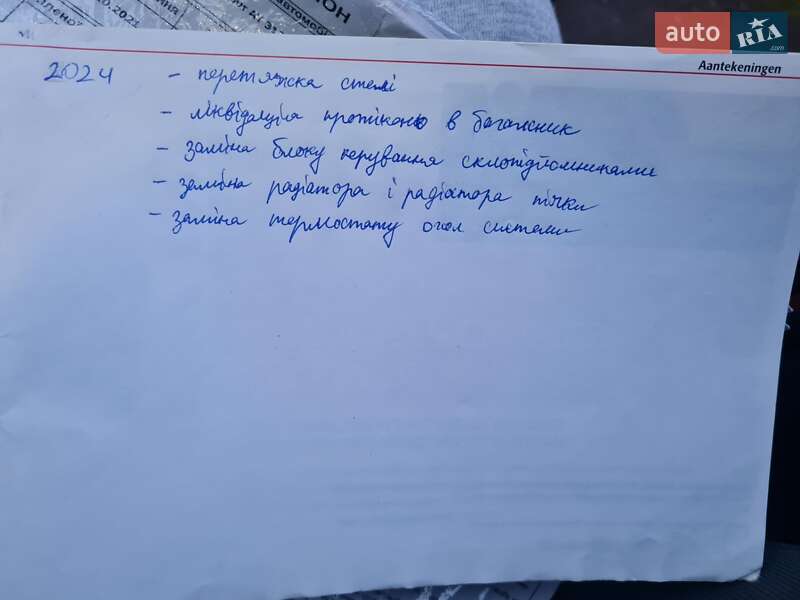 ОН
автомобі
0.2021
auto RIA .com
Aantekeningen
2024 - перетяжка стелі
- ліквідація протікань в багажник
- заміна блоку керування склопідйомниками
- заміна радіатора і радіатора пічки
- заміна термостату охол системи